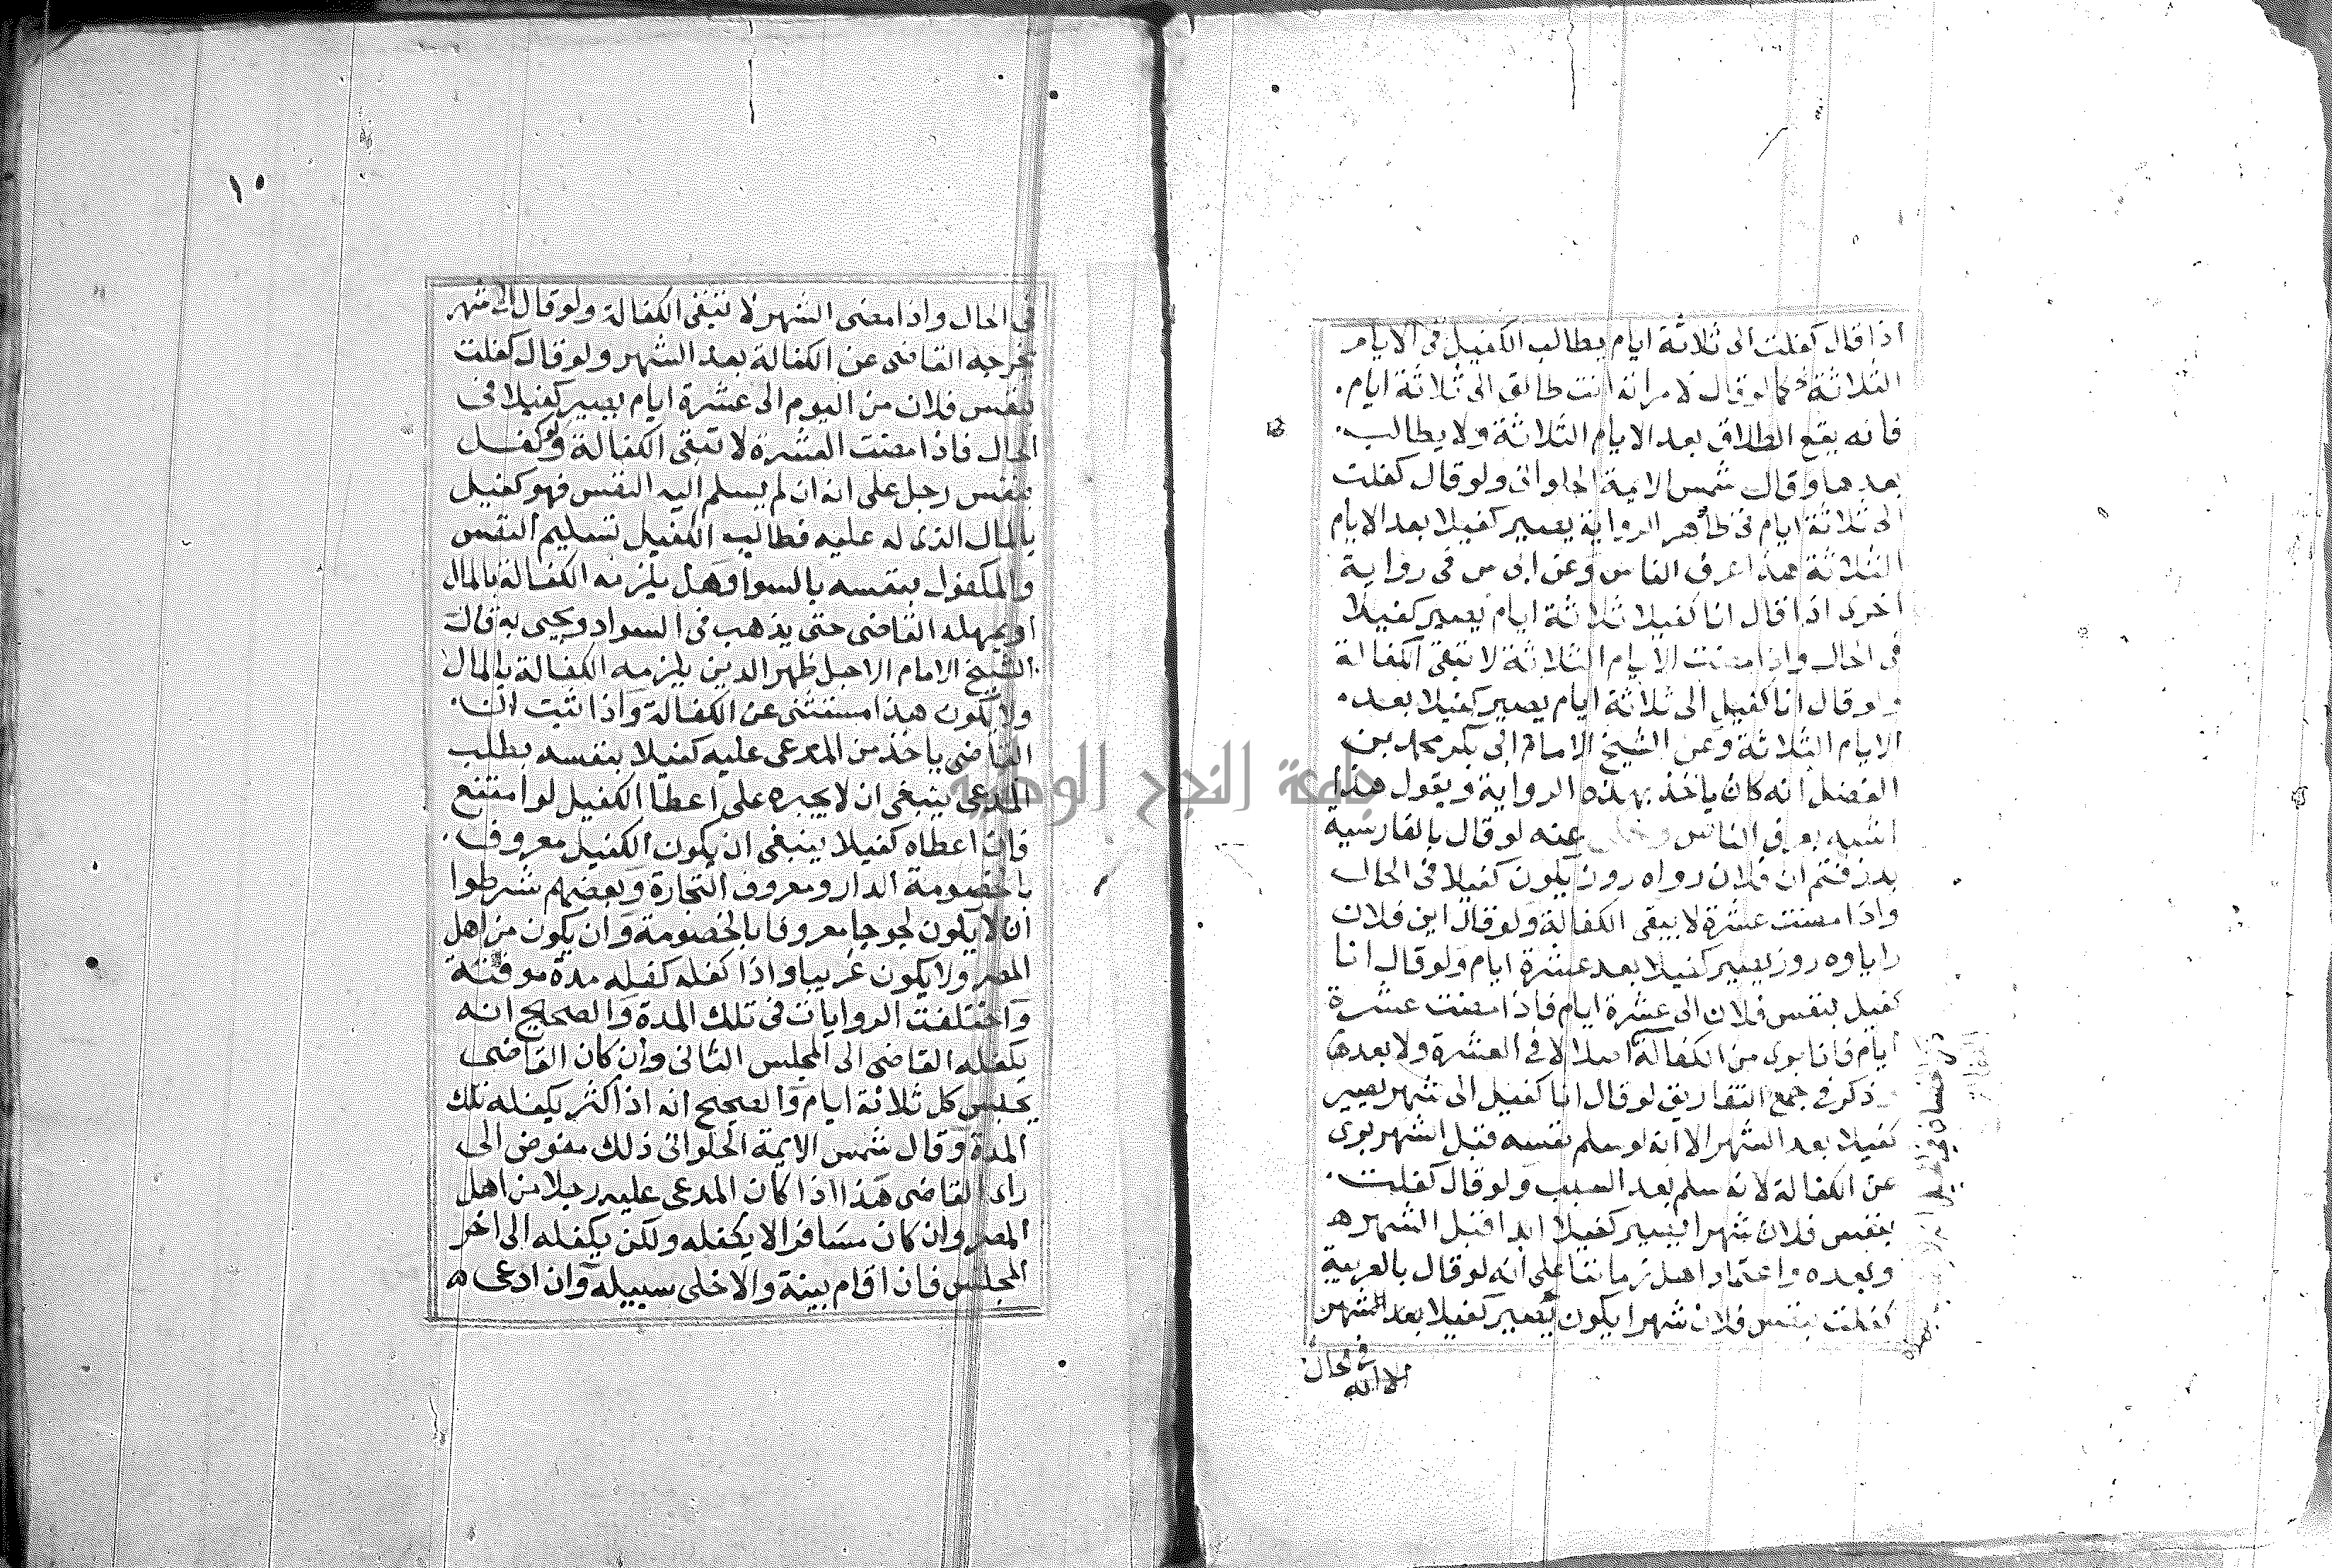 اذا قال كفلت الى ثلاثة ايام يطالب الكفيل فى الايام
الثلاثة كما لو قال لامرانه انت طالق الى ثلاثة ايام
فانه يقع الطلاق بعد الايام الثلاثة ولا يطالب
بعدها وقال شمس الايمة الحلوانى ولو قال كفلت
الى ثلاثة ايام فى ظاهر الرواية يصير كفيلا بعد الايام
الثلاثة هذا عرف الناس وعن ابى س فى رواية
اخرى اذا قال انا كفيلا ثلاثة ايام يصير كفيلا
فى الحال واذا مضت الايام الثلاثة لا تبقى الكفالة
ولو قال انا كفيل الى ثلاثة ايام يصير كفيلا بعد
الايام الثلاثة وعن الشيخ الامام ابى بكر محمد بن
الفضل انه كان ياخذ بهذه الرواية ويقول هذا
اشبه بعرف الناس عنه لو قال بالفارسية
بدزفتم ان فلان رواه روز يكون كفيلا فى الحال
واذا مضت عشرة لا يبقى الكفالة ولو قال اين فلان
را ياوه روز يصير كفيلا بعد عشرة ايام ولو قال انا
كفيل بنفس فلان الى عشرة ايام فاذا مضت عشرة
ايام فانا برى من الكفالة اصلا لا فى العشرة ولا بعدها
ذكر فى جمع التفاريق لو قال انا كفيل الى شهر يصير
كفيلا بعد الشهر الا انه لو سلم نفسه قبل الشهر برى
عن الكفالة لانه سلم بعد السبب ولو قال كفلت
بنفس فلان شهرا يصير كفيلا ابدا قبل الشهر ه
وبعده واعتماد اهل زماننا على انه لو قال بالعربية
كفلت بنفس فلان شهرا يكون يصير كفيلا بعد الشهر
فى الحال
الا انه
١٠
فى الحال واذا مضى الشهر لا تبقى الكفالة ولو قال الى شهر
يخرجه القاضى عن الكفالة بعد الشهر ولو قال كفلت
بنفس فلان من اليوم الى عشرة ايام يصير كفيلا فى
الحال فاذا مضت العشرة لا تبقى الكفالة ولو كفل
بنفس رجل على انه ان لم يسلم اليه النفس فهو كفيل
بالمال الذى له عليه فطالب الكفيل تسليم النفس
والمكفول بنفسه بالسواد وهل يلزمه الكفالة بالمال
او يمهله القاضى حتى يذهب فى السواد ويجى به قال
الشيخ الامام الاجل ظهر الدين يلزمه الكفالة بالمال
ولا يكون هذا مستثنى عن الكفالة واذا ثبت ان
القاضى ياخذ من المدعى عليه كفيلا بنفسه بطلب
المدعى ينبغى ان لا يجبره على اعطا الكفيل لو امتنع
فان اعطاه كفيلا ينبغى ان يكون الكفيل معروف
بالخصومة الدار ومعروف التجارة وبعضهم شرطوا
ان لا يكون لجوجا معروفا بالخصومة وان يكون من اهل
المصر ولا يكون غريبا واذا كفله كفله مدة موقتة
واختلفت الروايات فى تلك المدة والصحيح انه
يكفله القاضى الى المجلس الثانى وان كان القاضى
يجلس كل ثلاثة ايام والصحيح انه اذا اكثر يكفله تلك
المدة وقال شمس الايمة الحلوانى ذلك مفوض الى
راى القاضى هذا اذا كان المدعى عليه رجلا من اهل
المصر وان كان مسافرا لا يكفله ولكن يكفله الى اخر
المجلس فان اقام بينة والا خلى سبيله وان ادعى ه
جامعة النجاح الوطنية